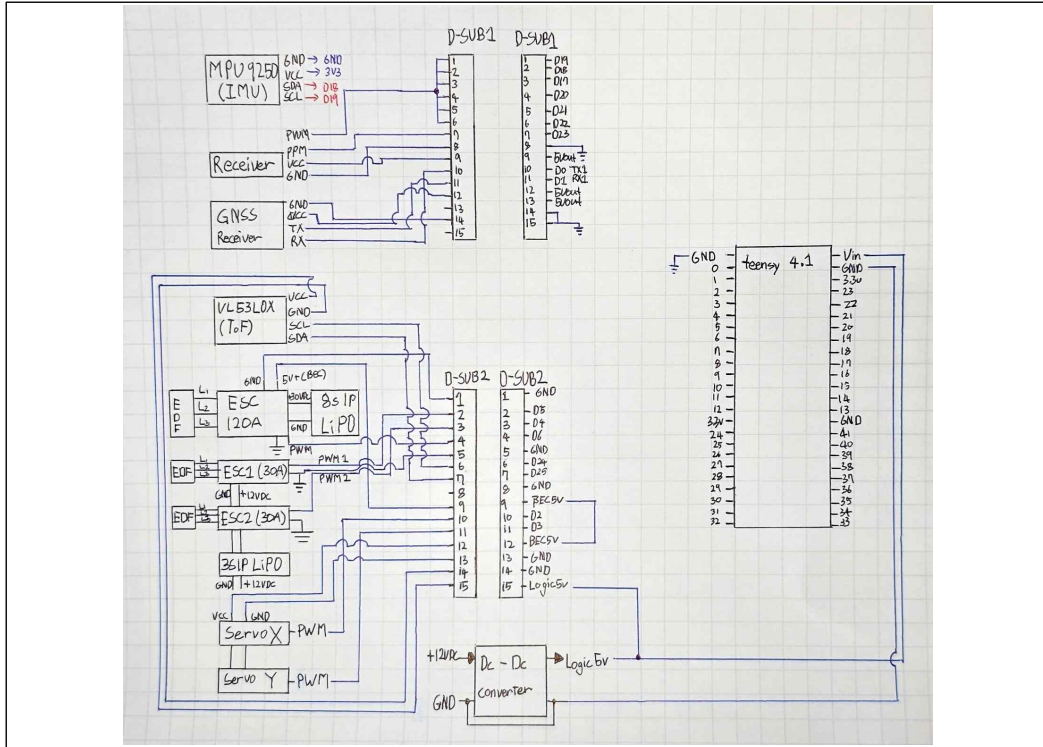 D-SUB1
D-SUB1
MPU9250
(IMU)
GND → GND
VCC → 3V3
SDA → D18
SCL → D19
PWM
PPM
VCC
GND
Receiver
GNSS
Receiver
GND
VCC
TX
RX
1
2
3
4
5
6
7
8
9
10
11
12
13
14
15
1 D19
2 D18
3 D17
4 D20
5 D21
6 D22
7 D23
8
9 5Vout
10 D0 TX1
11 D1 RX1
12 5Vout
13 5Vout
14
15
VL53L0X
(ToF)
VCC
GND
SCL
SDA
GND
5V+(BEC)
E
D
F
L1
L2
L3
ESC
120A
30VDC
GND
8S1P
LiPO
PWM
EDF
L1
L2
L3
ESC1 (30A)
PWM1
PWM2
GND
+12VDC
EDF
L1
L2
L3
ESC2 (30A)
3S1P LiPO
GND
+12VDC
VCC
GND
Servo X
PWM
Servo Y
PWM
D-SUB2
D-SUB2
1
2
3
4
5
6
7
8
9
10
11
12
13
14
15
1 GND
2 D5
3 D4
4 D6
5 GND
6 D24
7 D25
8 GND
9 BEC5V
10 D2
11 D3
12 BEC5V
13 GND
14 GND
15 Logic5V
+12VDC
GND
Dc - Dc
converter
Logic5V
teensy 4.1
GND
0
1
2
3
4
5
6
7
8
9
10
11
12
3.3V
24
25
26
27
28
29
30
31
32
Vin
GND
3.3V
23
22
21
20
19
18
17
16
15
14
13
GND
41
40
39
38
37
36
35
34
33